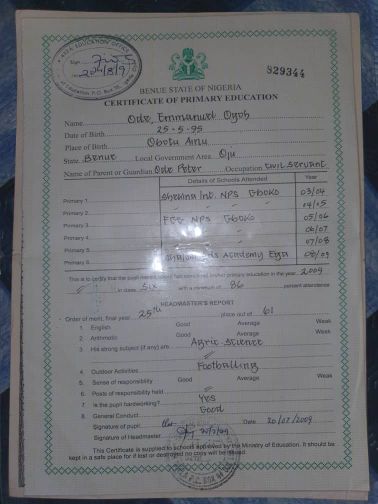 AREA EDUCATION OFFICE
Sign
829344
BENUE STATE OF NIGERIA
CERTIFICATE OF PRIMARY EDUCATION
Name Ode, Emmanuel Ogoh
Date of Birth 25-5-95
Place of Birth Obotu Ainu
State Benue Local Government Area Oju
Name of Parent or Guardian Ode Peter Occupation Civil Servant
Details of Schools Attended Year
Primary 1 Int. NPS Gboko 03/04
Primary 2 " " " 04/05
Primary 3 FGC NPS Gboko 05/06
Primary 4 " " " 06/07
Primary 5 07/08
Primary 6 Academy 08/09
This is to certify that the pupil primary education in the year 2009
in class SIX with a minimum of 86 percent attendance
HEADMASTER'S REPORT
Order of merit, final year 25th place out of 61
1. English Good Average Weak
2. Arithmetic Good Average Weak
3. His strong subject (if any) are Agric. Science
4. Outdoor Activities Footballing
5. Sense of responsibility Good Average Weak
6. Posts of responsibility held
7. Is the pupil hardworking? Yes
8. General Conduct Good
Signature of pupil Date 20/07/2009
Signature of Headmaster
This Certificate is supplied to schools approved by the Ministry of Education. It should be
kept in a safe place for if lost or destroyed no copy will be issued.